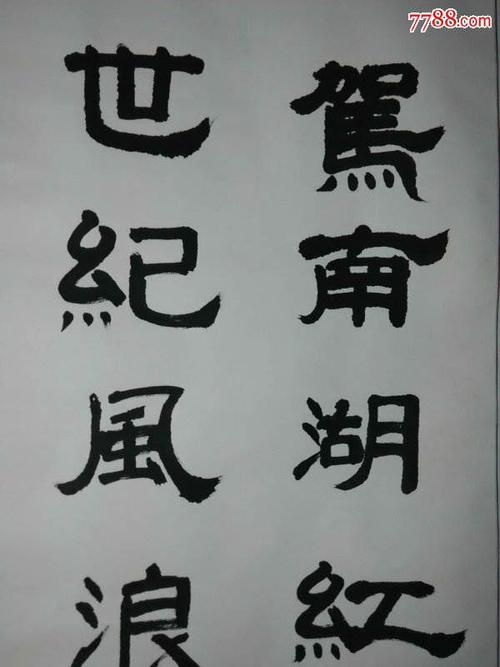 7788.com
駕南湖紅
世紀風浪